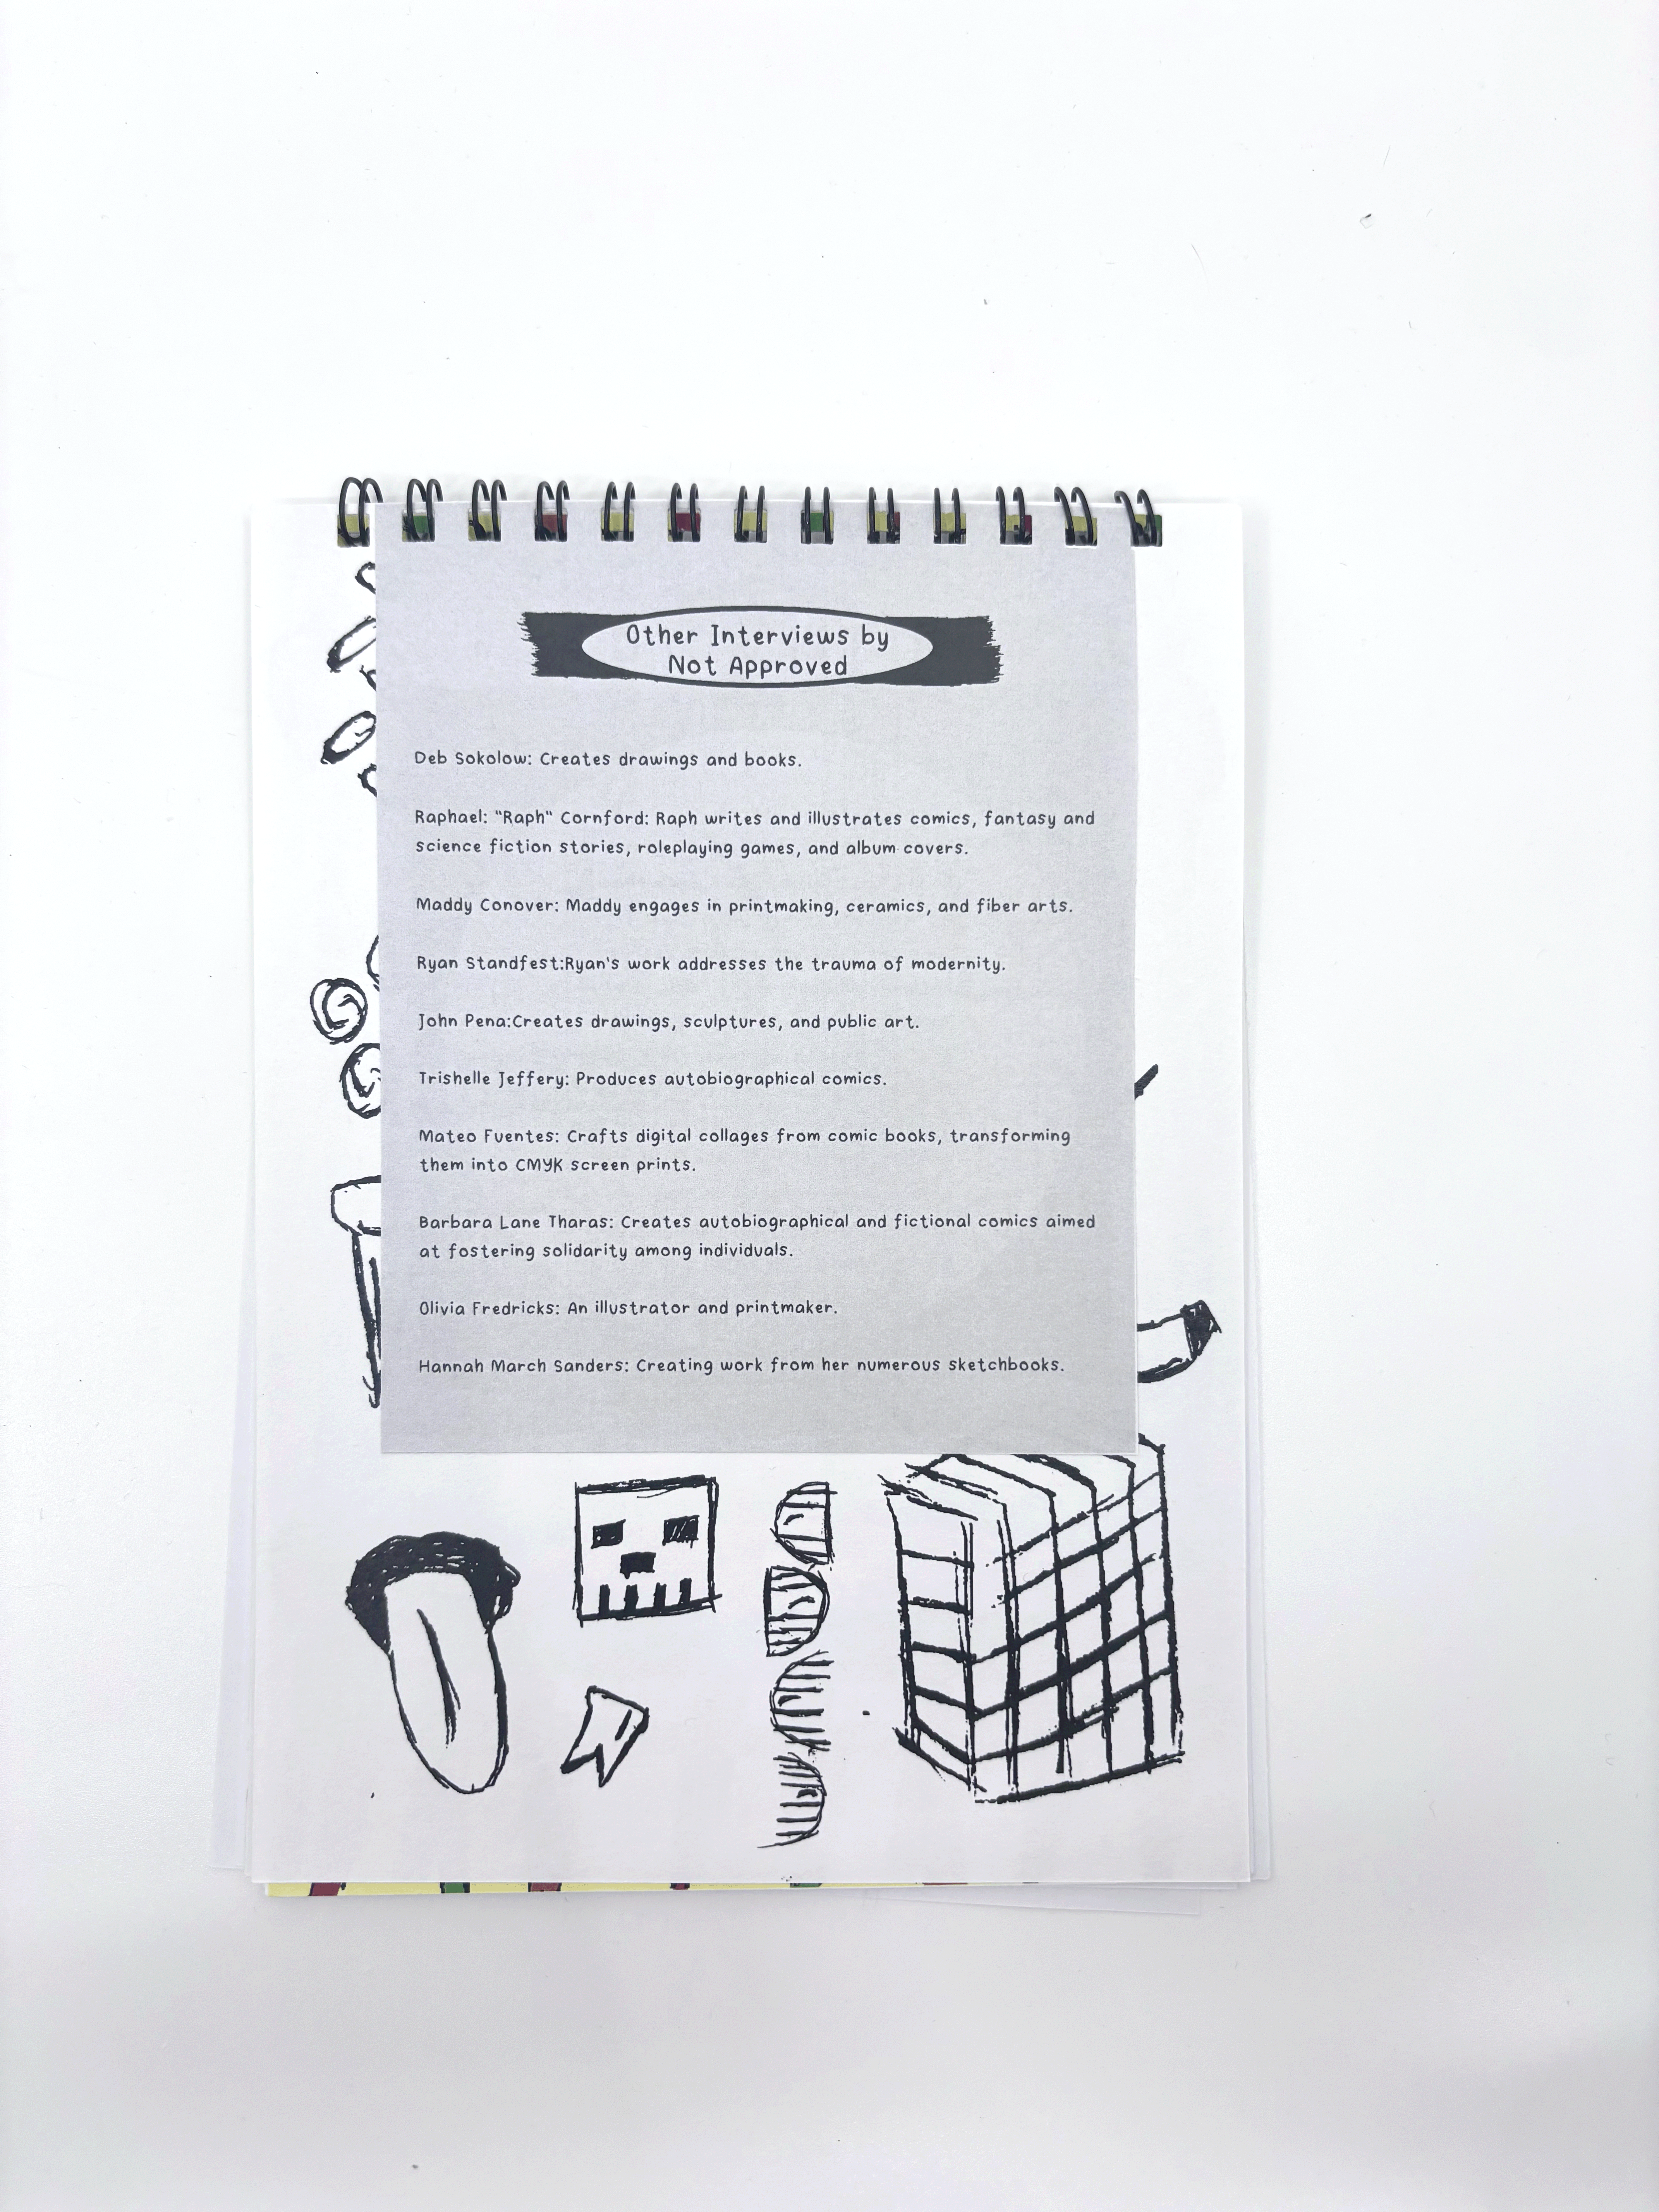 Other Interviews by
Not Approved
Deb Sokolow: Creates drawings and books.
Raphael: "Raph" Cornford: Raph writes and illustrates comics, fantasy and
science fiction stories, roleplaying games, and album covers.
Maddy Conover: Maddy engages in printmaking, ceramics, and fiber arts.
Ryan Standfest:Ryan's work addresses the trauma of modernity.
John Pena:Creates drawings, sculptures, and public art.
Trishelle Jeffery: Produces autobiographical comics.
Mateo Fuentes: Crafts digital collages from comic books, transforming
them into CMYK screen prints.
Barbara Lane Tharas: Creates autobiographical and fictional comics aimed
at fostering solidarity among individuals.
Olivia Fredricks: An illustrator and printmaker.
Hannah March Sanders: Creating work from her numerous sketchbooks.